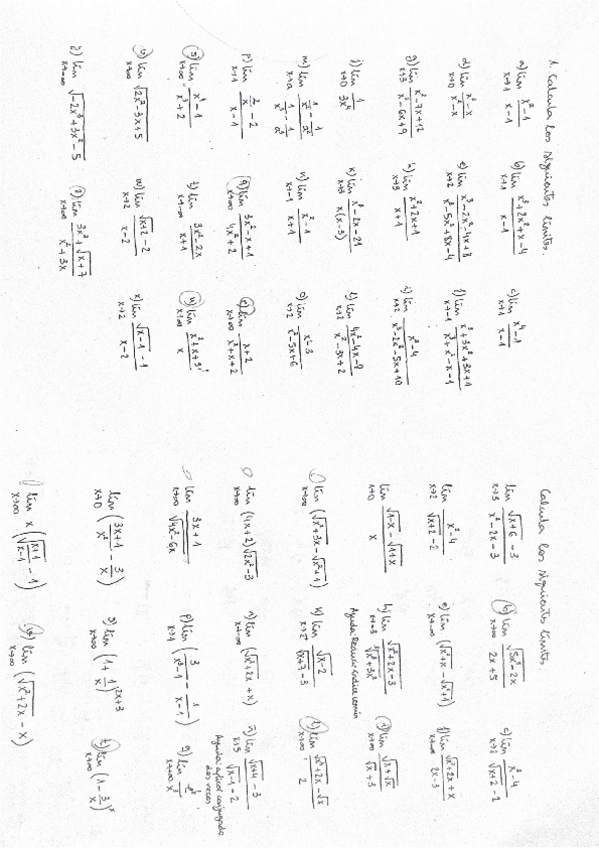 1. Calcula los siguientes límites.
a) lím x→1 (x²-1)/(x-1) b) lím x→1 (x³+2x²+x-4)/(x-1) c) lím x→1 (x⁴-1)/(x-1)
d) lím x→0 (x²-x)/(x²-x) e) lím x→2 (x³-2x²-4x+8)/(x³-5x²+8x-4) f) lím x→-1 (x³+3x²+3x+1)/(x³+x²-x-1)
g) lím x→3 (x²-7x+12)/(x²-6x+9) h) lím x→3 (x²+2x+1)/(x+1) i) lím x→2 (x²-4)/(x³-2x²-5x+10)
j) lím x→0 1/(3x⁴) k) lím x→3 (x²-2x-21)/(x(x-3)) l) lím x→2 (4x²-4x-8)/(x²-3x+2)
m) lím x→a (1/x² - 1/a²)/(1/x³ - 1/a³) n) lím x→-1 (x²-1)/(x+1) o) lím x→2 (x-3)/(x²-5x+6)
p) lím x→1 (2/x - 2)/(x-1) q) lím x→∞ (3x²-x+1)/(4x²+2) r) lím x→∞ (x+2)/(x²+x+2)
s) lím x→∞ (x²-1)/(x³+2) t) lím x→-∞ (3x²-2x)/(x+1) u) lím x→∞ (x²+x+3)/x
v) lím x→∞ √(2x²-3x+5) w) lím x→2 (√(x+2)-2)/(x-2) x) lím x→2 (√(x-1)-1)/(x-2)
y) lím x→-∞ √(-2x³+3x²-5) z) lím x→∞ (3x²+√(x+7))/(x²+3x)
Calcula los siguientes límites.
lím x→3 (√(x+6)-3)/(x²-2x-3) b) lím x→∞ √(5x²-2x)/(2x+5) c) lím x→2 (x²-4)/(√(x+2)-2)
lím x→2 (x²-4)/(√(x+2)-2) e) lím x→-∞ (√(x²+x)-√(x²+1)) f) lím x→-∞ (√(x²+2x)+x)/(2x-3)
lím x→0 (√(1-x)-√(1+x))/x h) lím
Ayuda: Reducir índice común
i) lím x→∞ √(x+√x)/√(x+3)
lím x→∞ (√(x²+3x)-√(x²+1)) k) lím x→2 √(x-2)/(√(x+7)-3) l) lím x→∞ (√(x²+2x)-√x)/2
lím x→-∞ (4x+2)√(2x²-3) n) lím x→-∞ (√(x²+2x)+x) ñ) lím x→5 (√(x+4)-3)/(√(x-1)-2)
Ayuda: aplicar conjugado
dos veces
lím x→∞ (3x+1)/√(4x²-6x) p) lím x→1 (3/(x²-1) - 1/(x-1)) q) lím x→∞
lím x→0 ((3x+1)/x² - 3/x) s) lím x→∞ (1+1/x)^(2x+3) t) lím x→∞ (1-3/x)^x
lím x→∞ x(√((x+1)/(x-1)) - 1) lím x→∞ (√(x²+2x)-x)